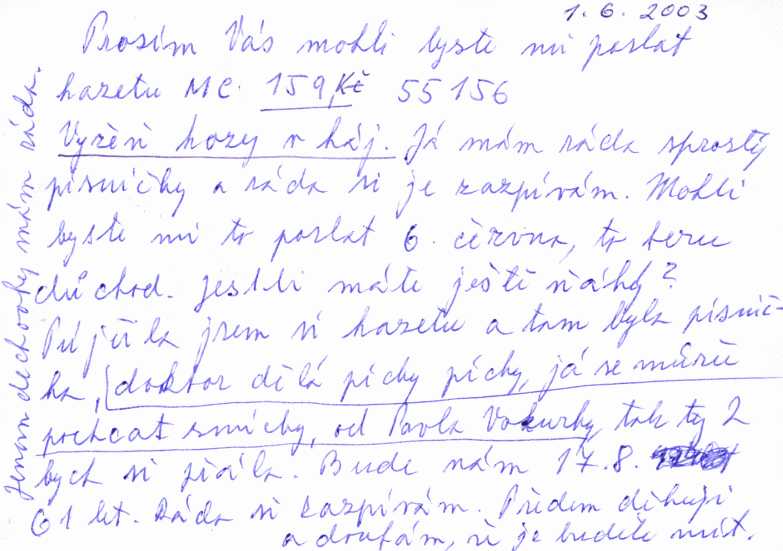 1. 6. 2003
Prosím Vás mohli byste mi poslat
kazetu MC. 159 Kč 55156
Vyžeň kozy v háj. Já mám ráda sprostý
písničky a ráda si je zazpívám. Mohli
byste mi to poslat 6. června, to beru
důchod. Jestli máte ještě ňáký?
Pujčila jsem si kazetu a tam byla písnič-
ka, doktor dělá pichy pichy, já se můžu
pochcat smíchy, od Pavla Vokurky, tak ty 2
bych si přála. Bude nám 17. 8.
61 let. Ráda si zazpívám. Předem děkuji
a doufám, že je budete mít.
Jenom dechovky mám ráda.